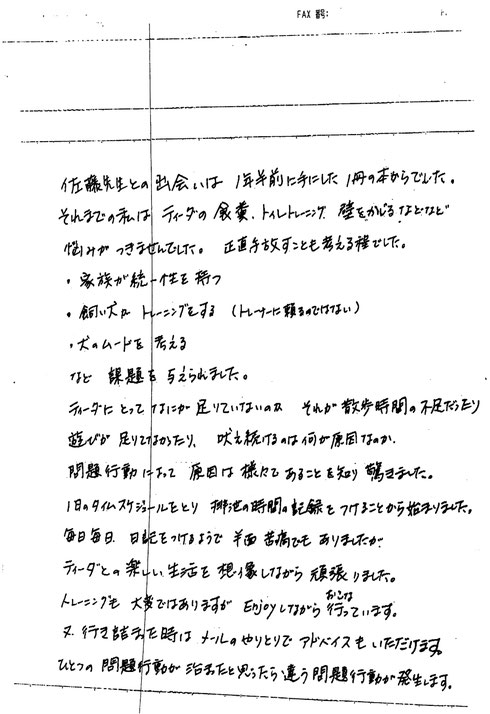 FAX 番号:
P.
佐藤先生との出会いは 1年半前に手にした 1冊の本からでした。
それまでの私は ティーダの食糞、トイレトレーニング、壁をかじるなどなど
悩みがつきませんでした。 正直手放すことも考える程でした。
・家族が統一性を持つ
・飼い犬が トレーニングをする (トレーナーに頼るのではない)
・犬のムードを考える
など 課題を与えられました。
ティーダにとってなにが足りていないのか それが散歩時間の不足だったり
遊びが足りてなかったり、 吠え続けるのは何が原因なのか、
問題行動によって 原因は様々であることを知り驚きました。
1日のタイムスケジュールをとり 排泄の時間の記録をつけることから始まりました。
毎日毎日、日記をつけるようで 半面苦痛でもありましたが
ティーダとの楽しい生活を想像しながら頑張りました。
トレーニングも大変ではありますが Enjoyしながら行っています。
おこな
又、行き詰まった時は メールのやりとりで アドバイスもいただけます。
ひとつの問題行動が治まったと思ったら違う問題行動が発生します。